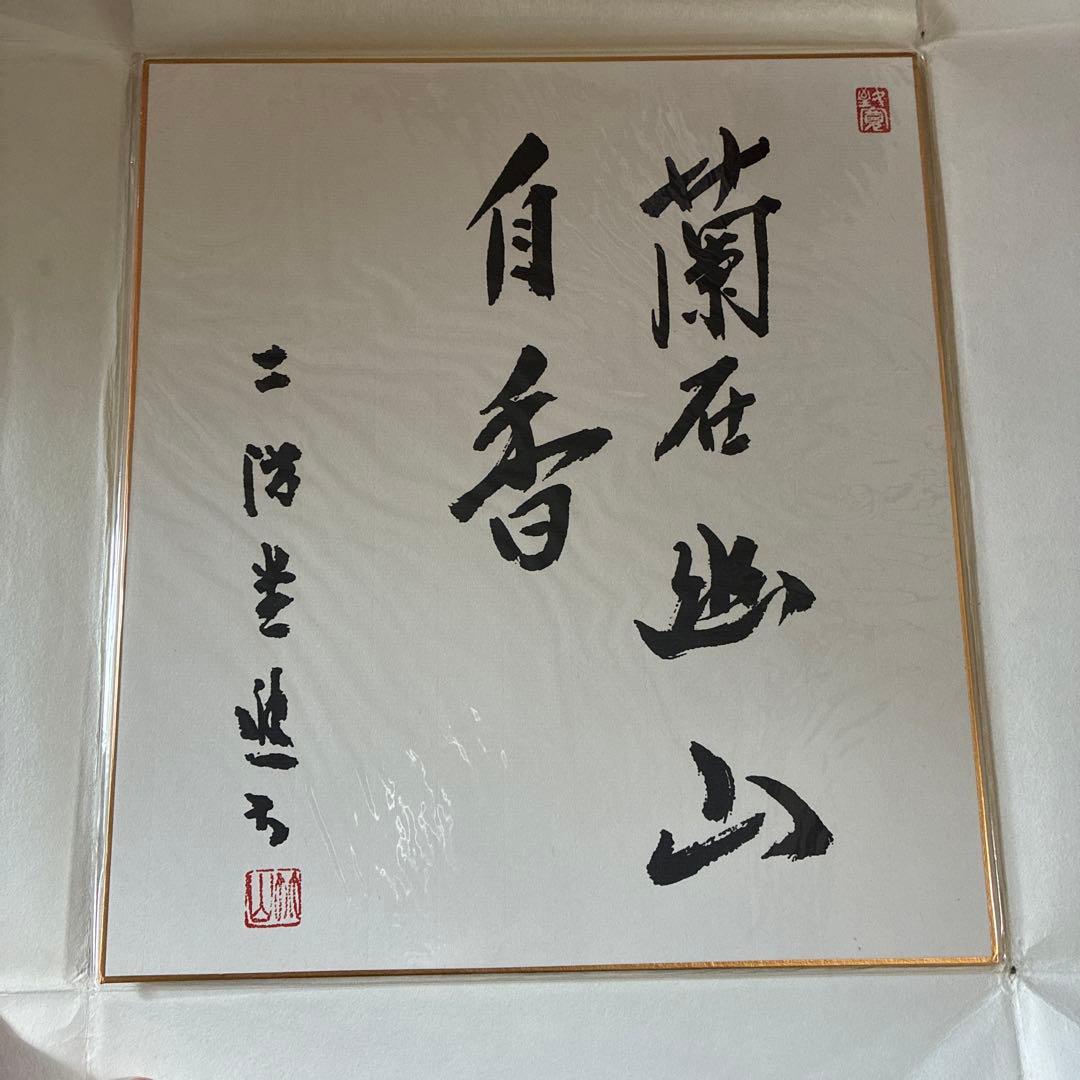 蘭在幽山
自香
二階堂進書